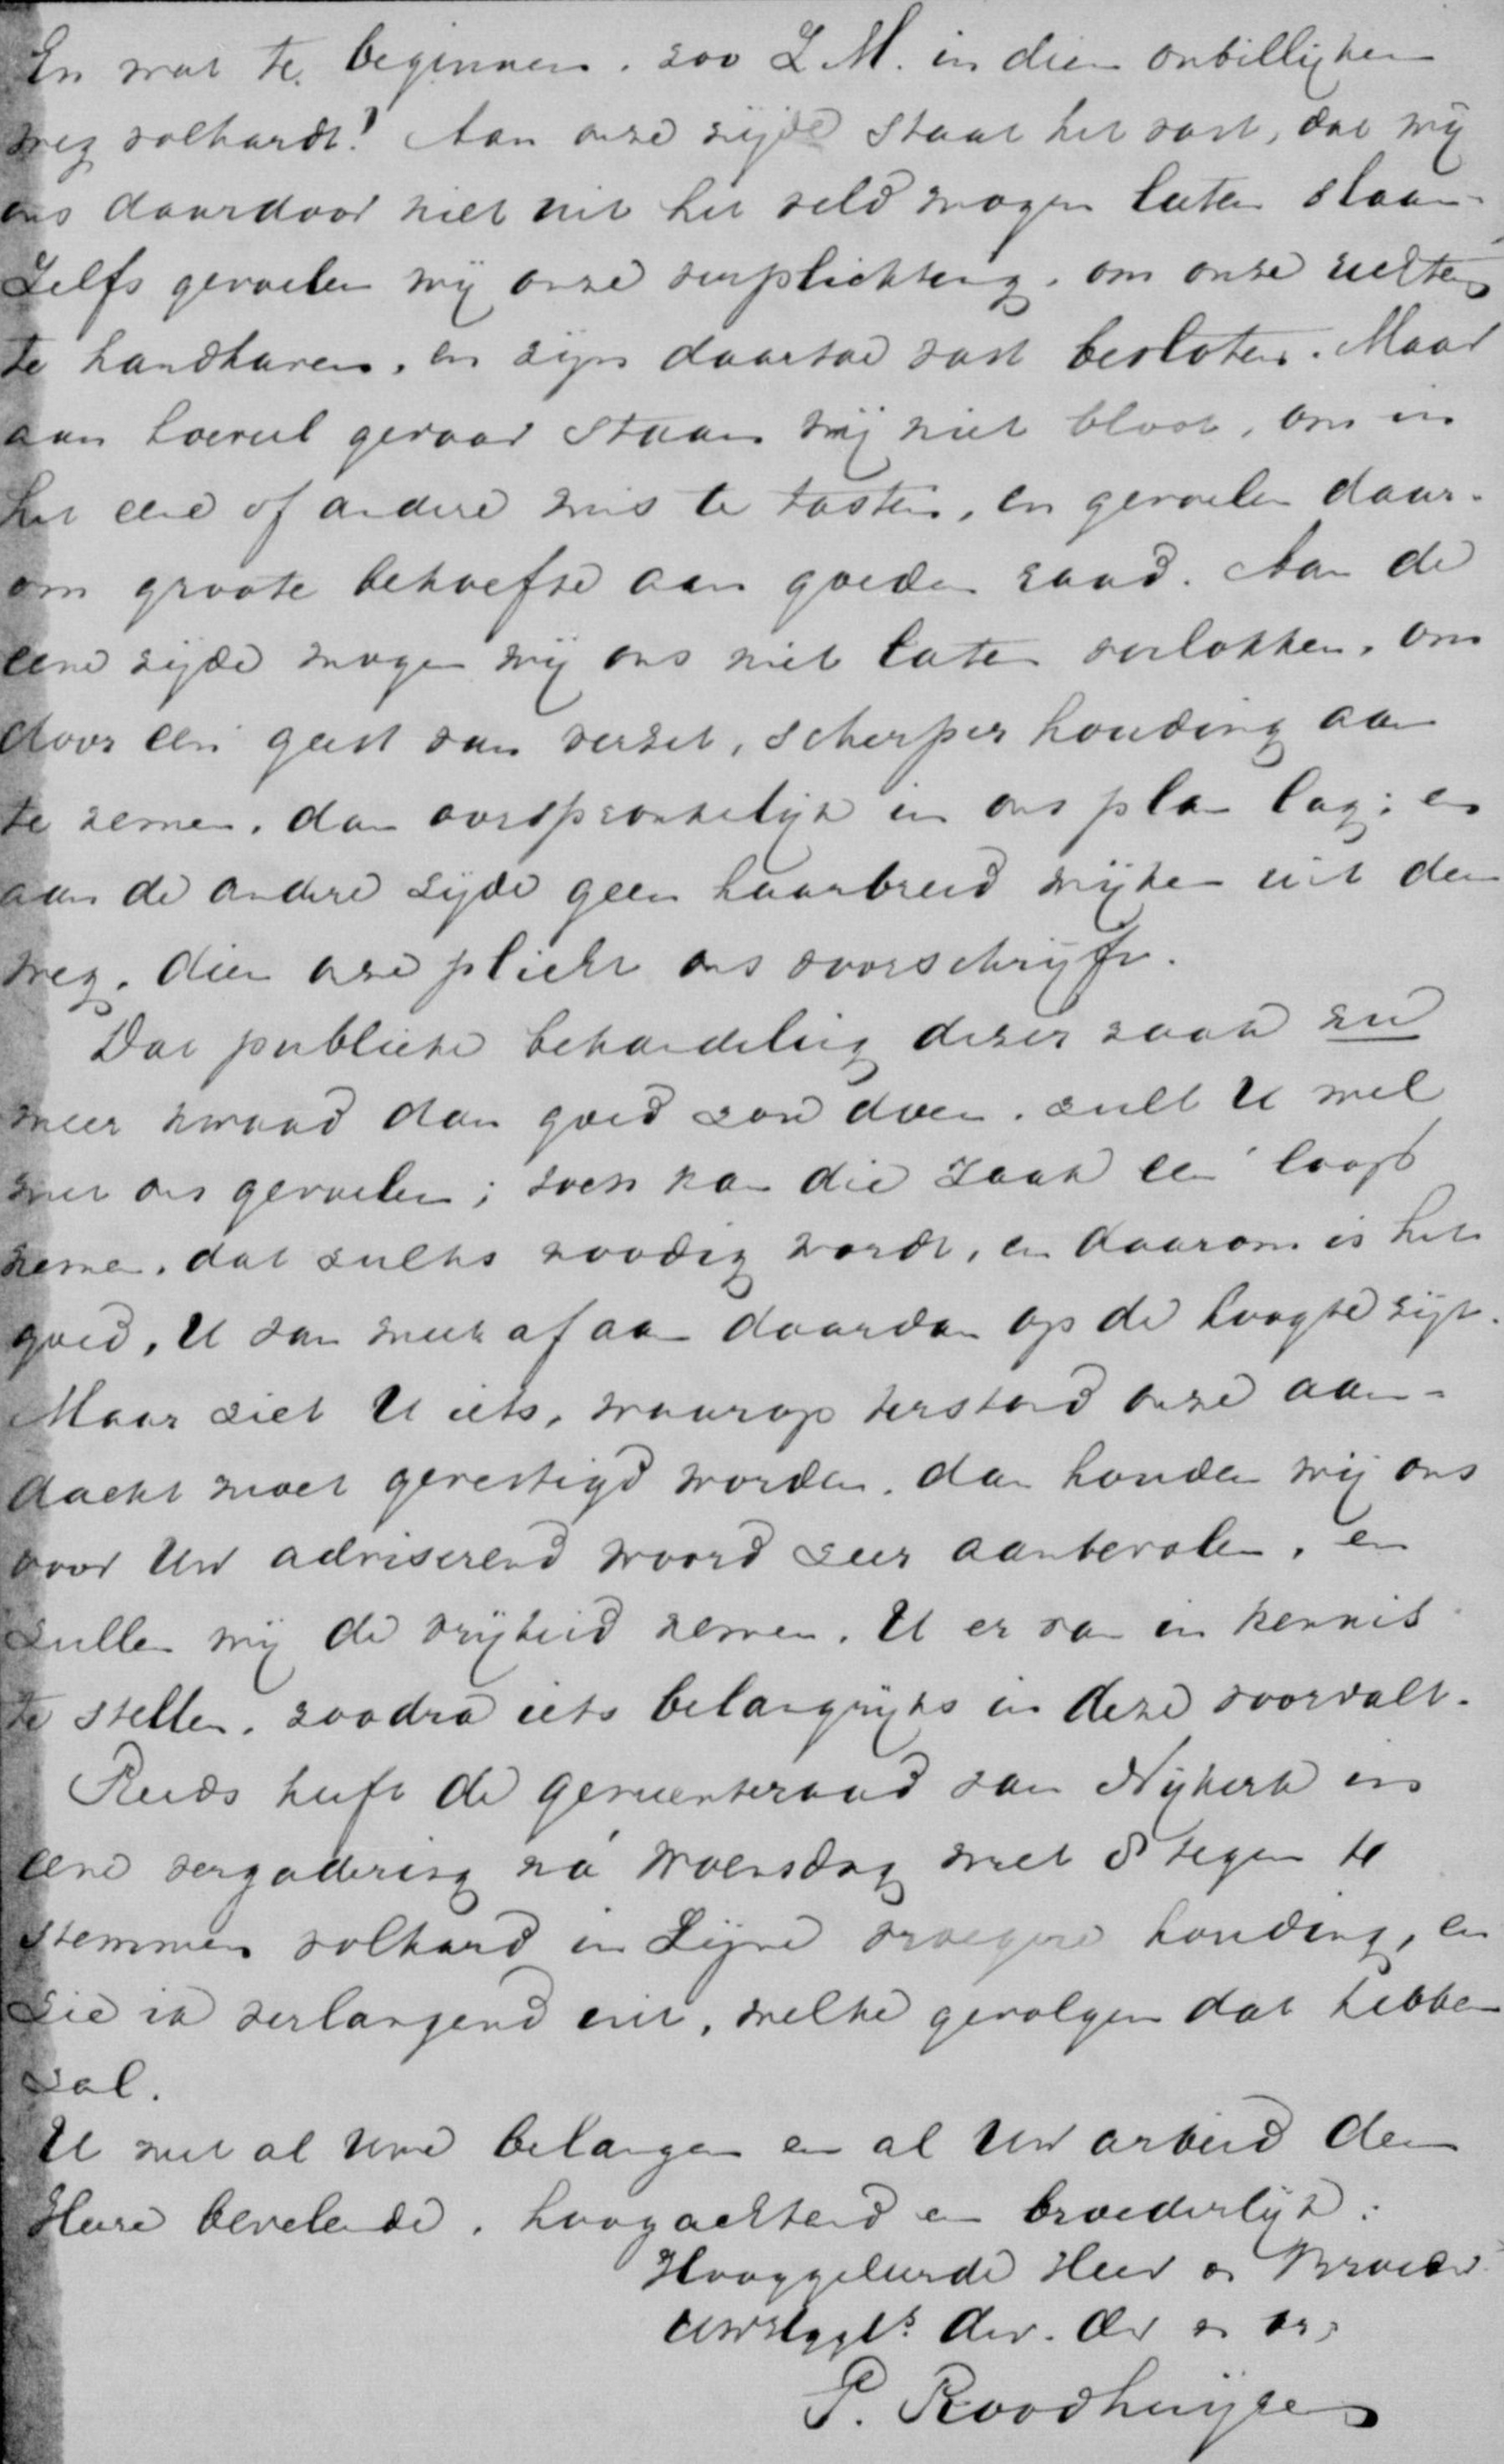 En wat te beginnen, zoo Z.M. in dien onbillijken
weg volhardt! Aan onze zijde staat het vast, dat wij
ons daardoor niet uit het veld mogen laten slaan.
Zelfs gevoelen wij onze verplichting, om onze rechten
te handhaven, en zijn daartoe vast besloten. Maar
aan hoeveel gevaar staan wij niet bloot, om in
het eene of andere mis te tasten, en gevoelen daar-
om groote behoefte aan goeden raad. Aan de
eene zijde mogen wij ons niet laten verlokken, om
door een geest van verzet, scherper houding aan
te nemen, dan oorspronkelijk in ons plan lag; en
aan de andere zijde geen haarbreed wijken uit den
weg, dien onze plicht ons voorschrijft.
Dat publieke behandeling dezer zaak nu
meer kwaad dan goed zou doen, zult U wel
met ons gevoelen; toch kan die zaak een loop
nemen, dat zulks noodig wordt, en daarom is het
goed, U van meet af aan daarvan op de hoogte zijt.
Maar ziet U iets, waarop terstond onze aan-
dacht moet gevestigd worden, dan houden wij ons
voor Uw adviserend woord zeer aanbevolen, en
zullen wij de vrijheid nemen, U er van in kennis
te stellen, zoodra iets belangrijks in deze voorvalt.
Reeds heeft de gemeenteraad van Nijkerk in
eene vergadering ná woensdag met 8 tegen 4
stemmen volhard in Zijne vroegere houding, en
zie ik verlangend uit, welke gevolgen dat hebben
zal.
U met al Uwe belangen en al Uw arbeid den
Heere bevelende, hoogachtend en broederlijk:
Hooggeleerde Heer en Broeder
UwHggl.s dw. dr en br,
P. Roodhuijzen